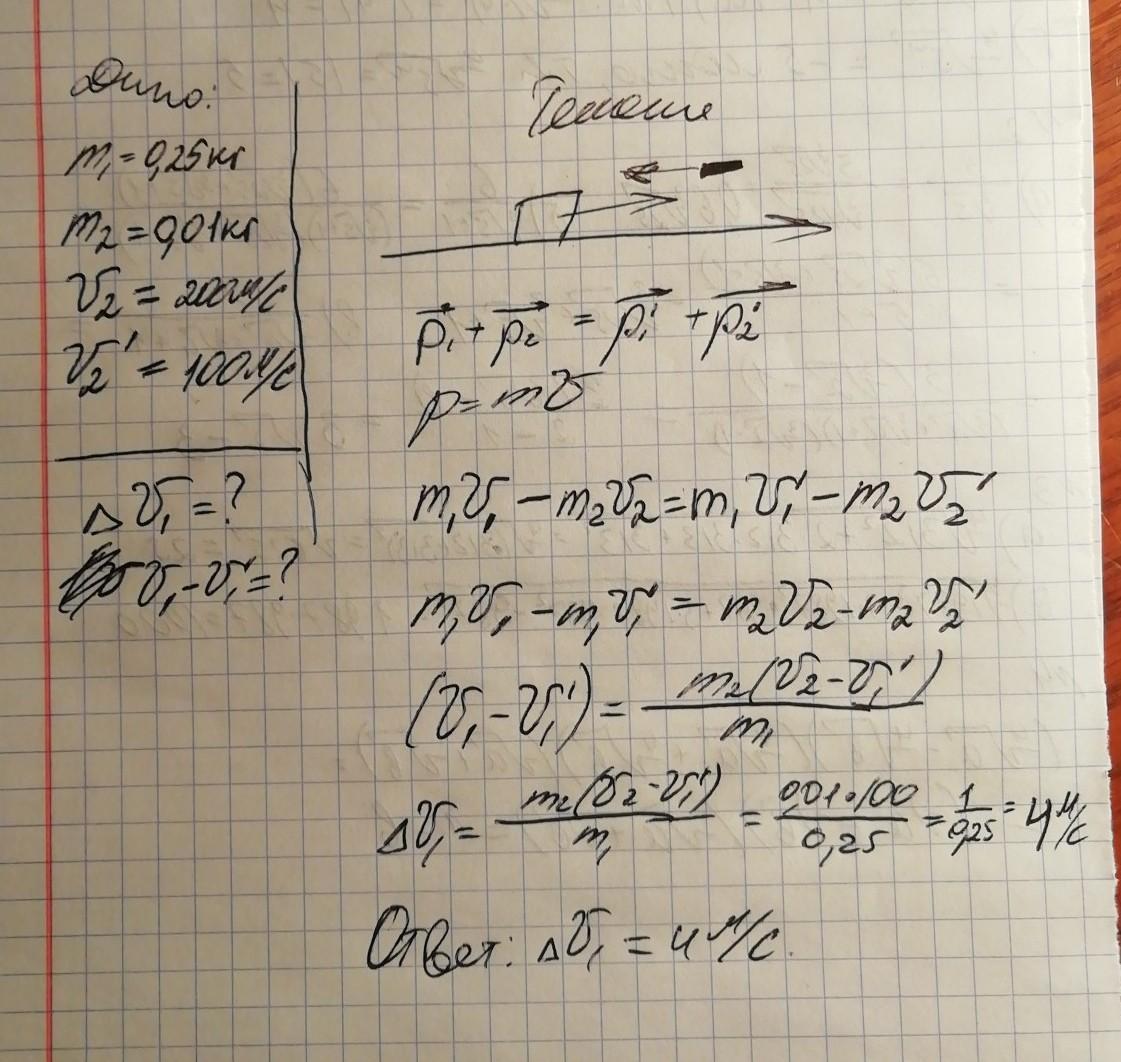 Дано:
m₁ = 0,25кг
m₂ = 0,01кг
V₂ = 200м/с
V₂' = 100м/с
ΔV₁ = ?
V₁ - V₁' = ?
Решение
p₁ + p₂ = p₁' + p₂'
p = mV
m₁V₁ - m₂V₂ = m₁V₁' - m₂V₂'
m₁V₁ - m₁V₁' = m₂V₂ - m₂V₂'
(V₁ - V₁') = m₂(V₂ - V₁') / m₁
ΔV₁ = m₂(V₂ - V₁') / m₁ = 0,01·100 / 0,25 = 1 / 0,25 = 4 м/с
Ответ: ΔV₁ = 4 м/с.